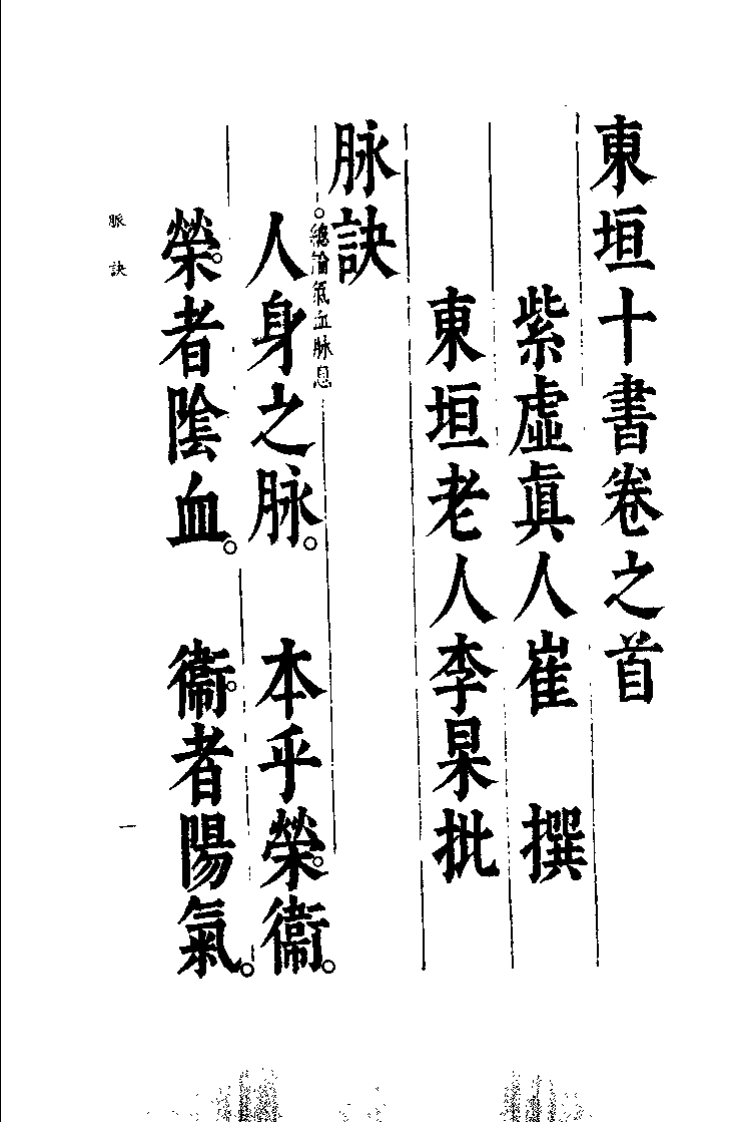 東垣十書卷之首
紫虛眞人崔　撰
東垣老人李杲批
脉訣
。總論氣血脉息
人身之脉。　本乎榮。衞。
榮。者陰血。　衞。者陽氣。
脈訣
一